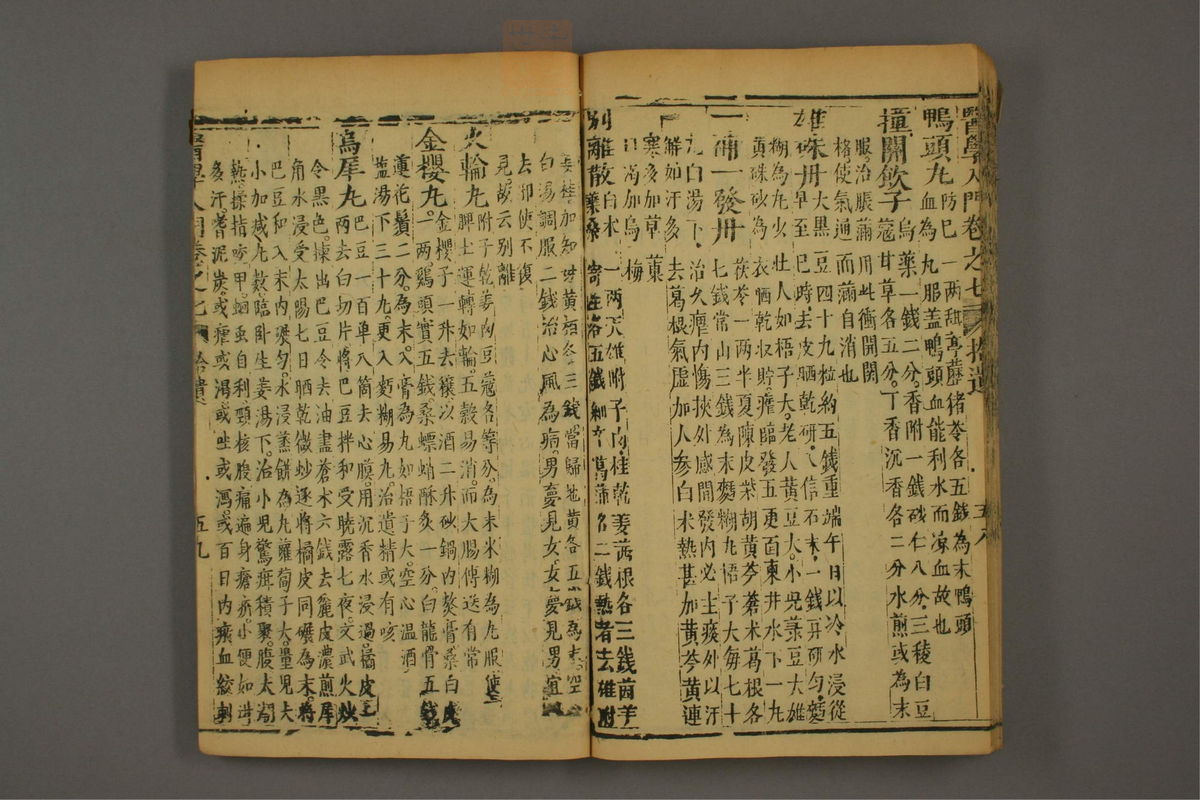 醫學入門卷之七 拾遺 五八
鴨頭丸 防巳一兩甜葶藶猪苓各五錢為末鴨頭
血為丸服盖鴨頭血能利水而凉血故也
撞關飲子 烏藥一錢二分香附一錢砂仁八分三稜白豆
蔻甘草各五分丁香沉香各二分水煎或為末
服治脹滿用此衝開關
格使氣通而滿自消也
雄硃丹 大黑豆四十九粒約五錢重端午日以冷水浸從
早至巳時去皮晒乾研入信石末一錢再研勻麵
糊為丸少壯人如梧子大老人黃豆大小兒菉豆大雄
黃硃砂為衣晒乾収貯瘧臨發五更面東井水下一丸
一補一發丹 茯苓一兩半夏陳皮柴胡黃芩蒼术葛根各
七錢常山三錢為末麵糊丸梧子大每七十
丸白湯下治久瘧内傷挾外感間發内必主痰外以汗
解如汗多去葛根氣虛加人參白术熱甚加黃芩黃連
寒多加草菓
口渴加烏梅
別離散 白术一兩天雄附子肉桂乾姜茜根各三錢茵芋
葉桑寄生各五錢細辛菖蒲各二錢熱者去雄附
姜桂加知母黃栢各三錢當歸地黃各五錢為末空
白湯調服二錢治心風為病男夢見女女夢見男宜
去邪使不復
見故云别離
火輪丸 附子乾姜肉豆蔻各等分為末米糊為丸服使
脾土運轉如輪五穀易消而大腸傳送有常
金櫻丸 金櫻子一升去穰以酒二升砂鍋内熬膏桑白皮
一兩鷄頭實五錢桑螵蛸酥炙一分白龍骨五錢
蓮花鬚二分為末入膏為丸如梧子大空心温酒
盐湯下三十丸更入麵糊易丸治遺精或有咳
烏犀丸 巴豆一百單八箇去心膜用沉香水浸過橘皮
兩去白切片將巴豆拌和受曉露七夜文武火炒
令黑色揀出巴豆令去油盡蒼术六錢去麄皮濃煎犀
角水浸受太陽七日晒乾微炒遂將橘皮同碾為末將
巴豆和入末内碾勻水浸蒸餅為丸蘿蔔子大量兒大
小加减丸數臨卧生姜湯下治小兒驚疳積聚腹大潮
熱揉指咬甲蛔虫自利頸核腹痛遍身瘡疥小便如泔
多汗嗜泥炭或瘧或渴或吐或瀉或百日内瘀血絞刺
醫學入門卷之七 拾遺 五九